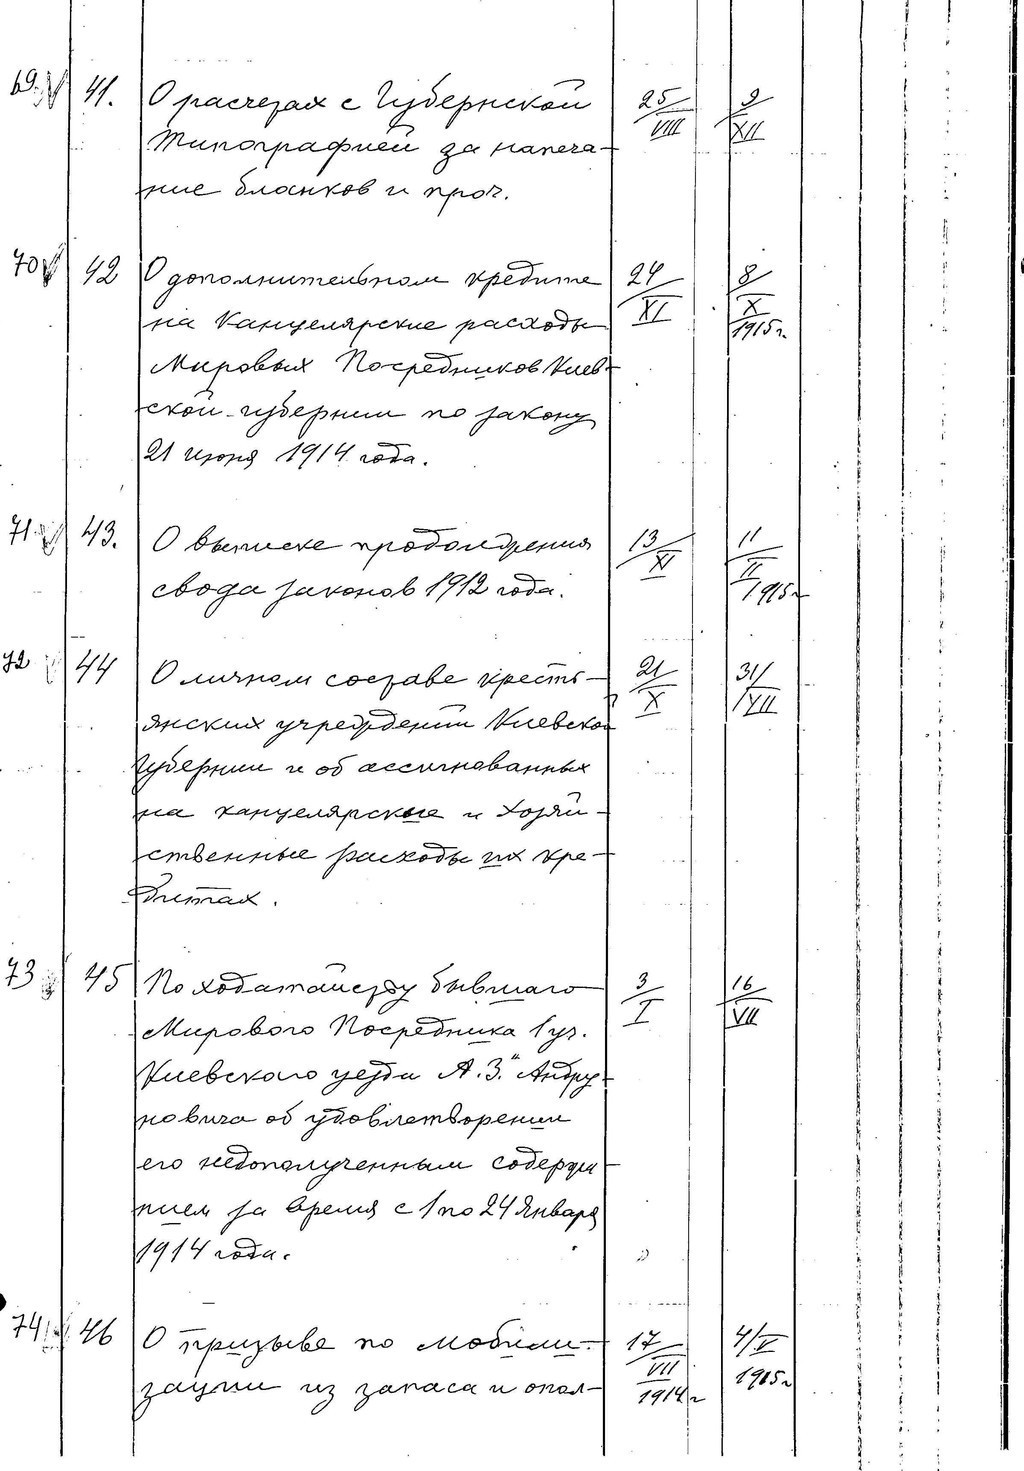 69. 41. О расчетах с Губернской 25/VIII 9/XII
Типографией за напеча-
ние бланков и проч.
70 42 О дополнительном кредите 24/XI 8/X 1915 г.
на Канцелярские расходы
Мировых Посредников Киев-
ской губернии по закону
21 июня 1914 года.
71 43. О выписке продолжения 13/XI 11/II 1915 г
свода законов 1912 года.
72 44 О личном составе кресть- 21/X 31/VII
янских учреждений Киевской
Губернии и об ассигнованных
на канцелярские и хозяй-
ственные расходы их кре-
дитах.
73 45 По ходатайству бывшаго 3/I 16/VII
Мирового Посредника 1 уч.
Киевского уезда А.З. Андру-
новича об удовлетворении
его недополученным содержа-
нием за время с 1 по 24 Января
1914 года.
74 46 О призыве по мобили- 17/VII 1914 г 4/V 1915 г
зации из запаса и опол-